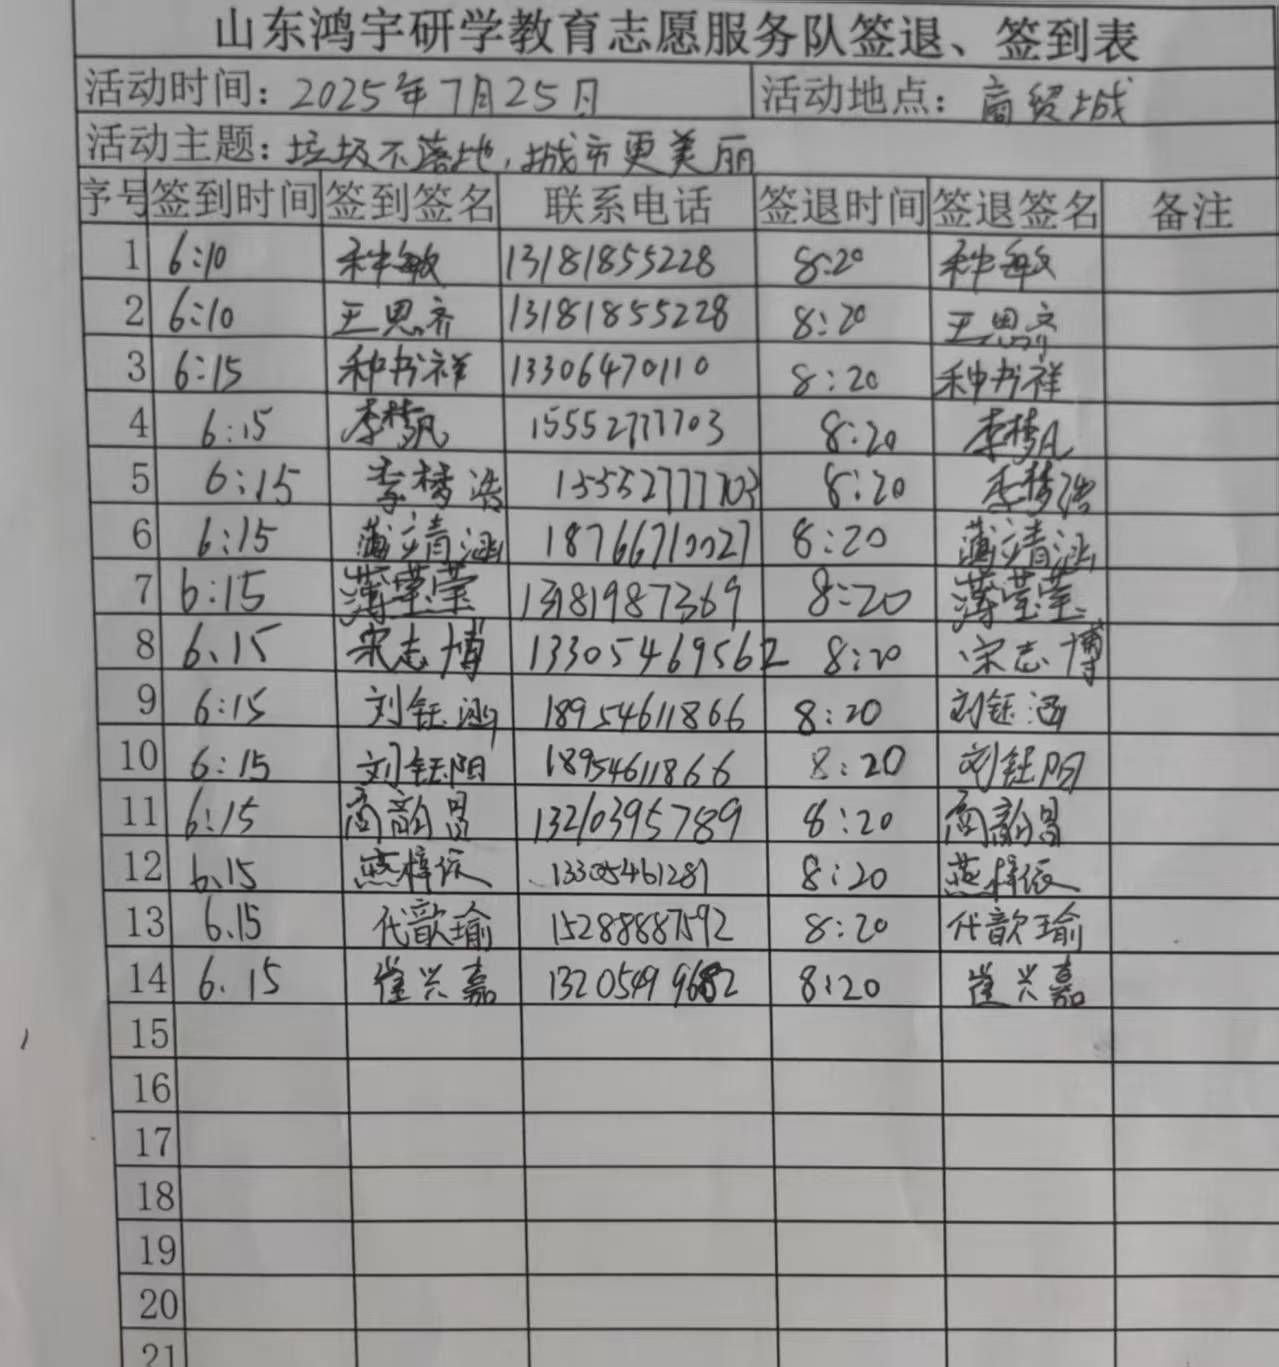 山东鸿宇研学教育志愿服务队签退、签到表
活动时间：2025年7月25日 活动地点：商贸城
活动主题：垃圾不落地，城市更美丽
序号 签到时间 签到签名 联系电话 签退时间 签退签名 备注
1 6:10 种敏 13181855228 8:20 种敏
2 6:10 王思齐 13181855228 8:20 王思齐
3 6:15 种书祥 13306470110 8:20 种书祥
4 6:15 李梦凡 15552777703 8:20 李梦凡
5 6:15 李梦浩 15552777703 8:20 李梦浩
6 6:15 薄靖涵 18766710027 8:20 薄靖涵
7 6:15 薄莹莹 13181987369 8:20 薄莹莹
8 6.15 宋志博 13305469562 8:20 宋志博
9 6:15 刘钰涵 18954611866 8:20 刘钰涵
10 6:15 刘钰阳 18954611866 8:20 刘钰阳
11 6:15 商韵昌 13210395789 8:20 商韵昌
12 6.15 燕梓依 13305461281 8:20 燕梓依
13 6.15 代歆瑜 15288887592 8:20 代歆瑜
14 6.15 崔兴嘉 8:20 崔兴嘉
15
16
17
18
19
20
21